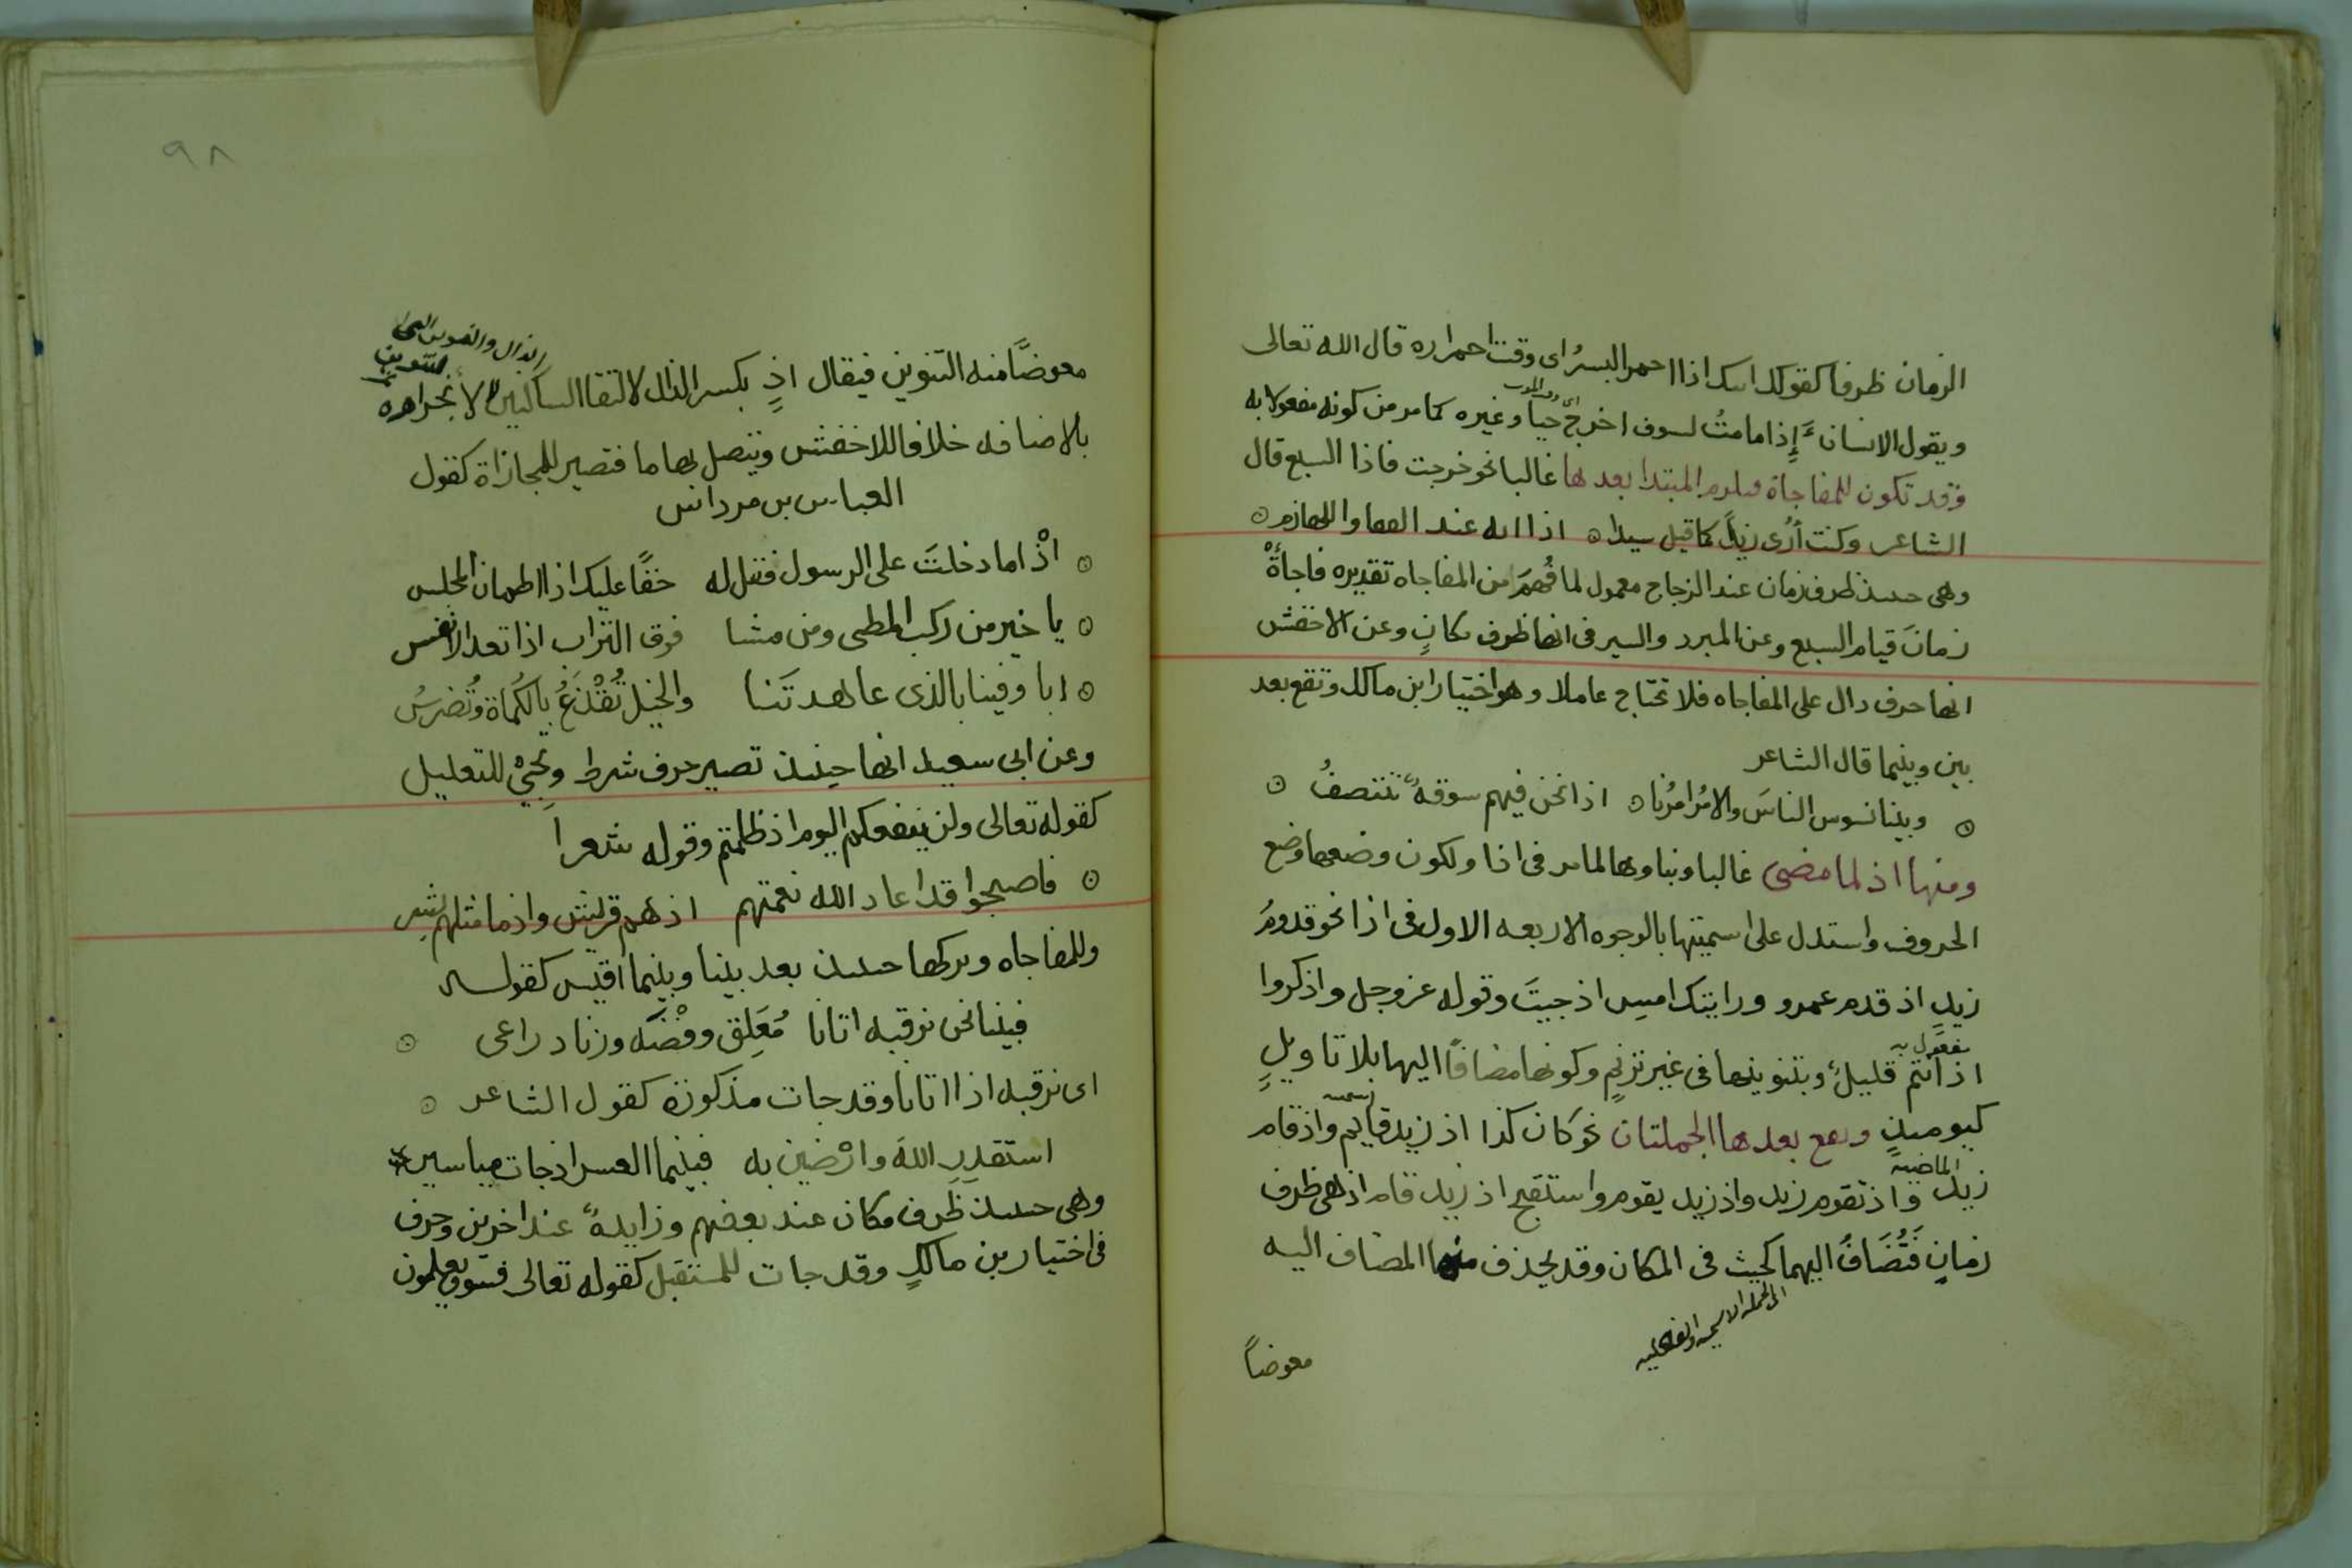 الزمان ظرفا كقولك اتيك اذا احمر البسرُ اى وقت احمراره قال الله تعالى
ويقول الانسان أَإِذا مامتُ لسوف اخرج حيا وغيره كما مر من كونه مفعولا به
وقد تكون للمفاجاة فيلزم المبتدا بعدها غالبا نحو خرجت فاذا السبع قال
الشاعر وكنت أُرى زيداً كما قيل سيدا ⊙ اذا انه عند القفا واللهازم ⊙
وهى حينئذ ظرف زمان عند الزجاج معمول لما فُهِمَ من المفاجاه تقديره فاجأةْ
زمانَ قيام السبع وعن المبرد والسيرفى انها ظرف مكانٍ وعن الاخفش
انها حرف دال على المفاجاه فلا تحتاج عاملا وهو اختيار ابن مالك وتقع بعد
بين وبينما قال الشاعر
⊙ وبينا نسوس الناسَ والامُر امرُنا ⊙ اذا نحن فيهم سوقهٌ نتنصفُ ⊙
ومنها اذ لما مضى غالبا وبناوها لما مر فى اذا ولكون وضعها وضع
الحروف واستدل على اسميتها بالوجوه الاربعه الاول فى اذا نحو قدومُ
زيدٍ اذ قدم عمرو ورايتك امس اذ جيتَ وقوله عز وجل واذكروا
مفعول به
اذ أنتم قليلٌ وبتنوينها فى غير ترنمٍ وكونها مضافاً اليها بلا تاويلٍ
كيوميذٍ وتقع بعدها الجملتان نحو كان كذا اذ زيد قايم واذ قام
الماضيه
زيد واذ تقوم زيد واذ زيد يقوم واستقبح اذ زيد قام اذ هى ظرف
زمانٍ فَتُضَافُ اليهما كحيث فى المكان وقد يحذف منها المضاف اليه
الى الجمله الاسميه والفعليه
معوضاً
٩٨
معوضًا منه التنوين فيقال اذٍ بكسر الذال لالتقا الساكنين لا لانجراره
الذال والتنوين
بالاضافه خلافا للاخفش وتتصل بها ما فتصير للمجازاة كقول
العباس بن مرداس
⊙ اذْ اما دخلتَ على الرسول فقل له حقًا عليك اذا اطمان المجلس
⊙ يا خير من ركب المطى ومن مشا فوق التراب اذا تعد الانفس
⊙ انا وفينا بالذى عاهدتَنا والخيل تُقْدَعُ بالكُماة وتُضرسُ
وعن ابى سعيد انها حينئذ تصير حرف شرط وتجئْ للتعليل
كقوله تعالى ولن ينفعكم اليوم اذ ظلمتم وقوله شعراً
⊙ فاصبحوا قد اعاد الله نعمتهم اذ هم قريش واذ ما مثلهم بشر
وللمفاجاه وتركها حينئذ بعد بينا وبينما اقيس كقوله
فبينا نحن نرقبه اتانا مُعَلِق وفْضَه وزناد راعى ⊙
اى نرقبه اذا اتانا وقد جات مذكورة كقول الشاعر ⊙
استقدِرِ اللهَ وارْضين به فبينما العسر اذ جات مياسير
وهى حينئذ ظرف مكان عند بعضهم وزايدهٌ عند اخرين وحرف
فى اختيار بن مالكٍ وقد جات للمستقبل كقوله تعالى فسوف يعلمون